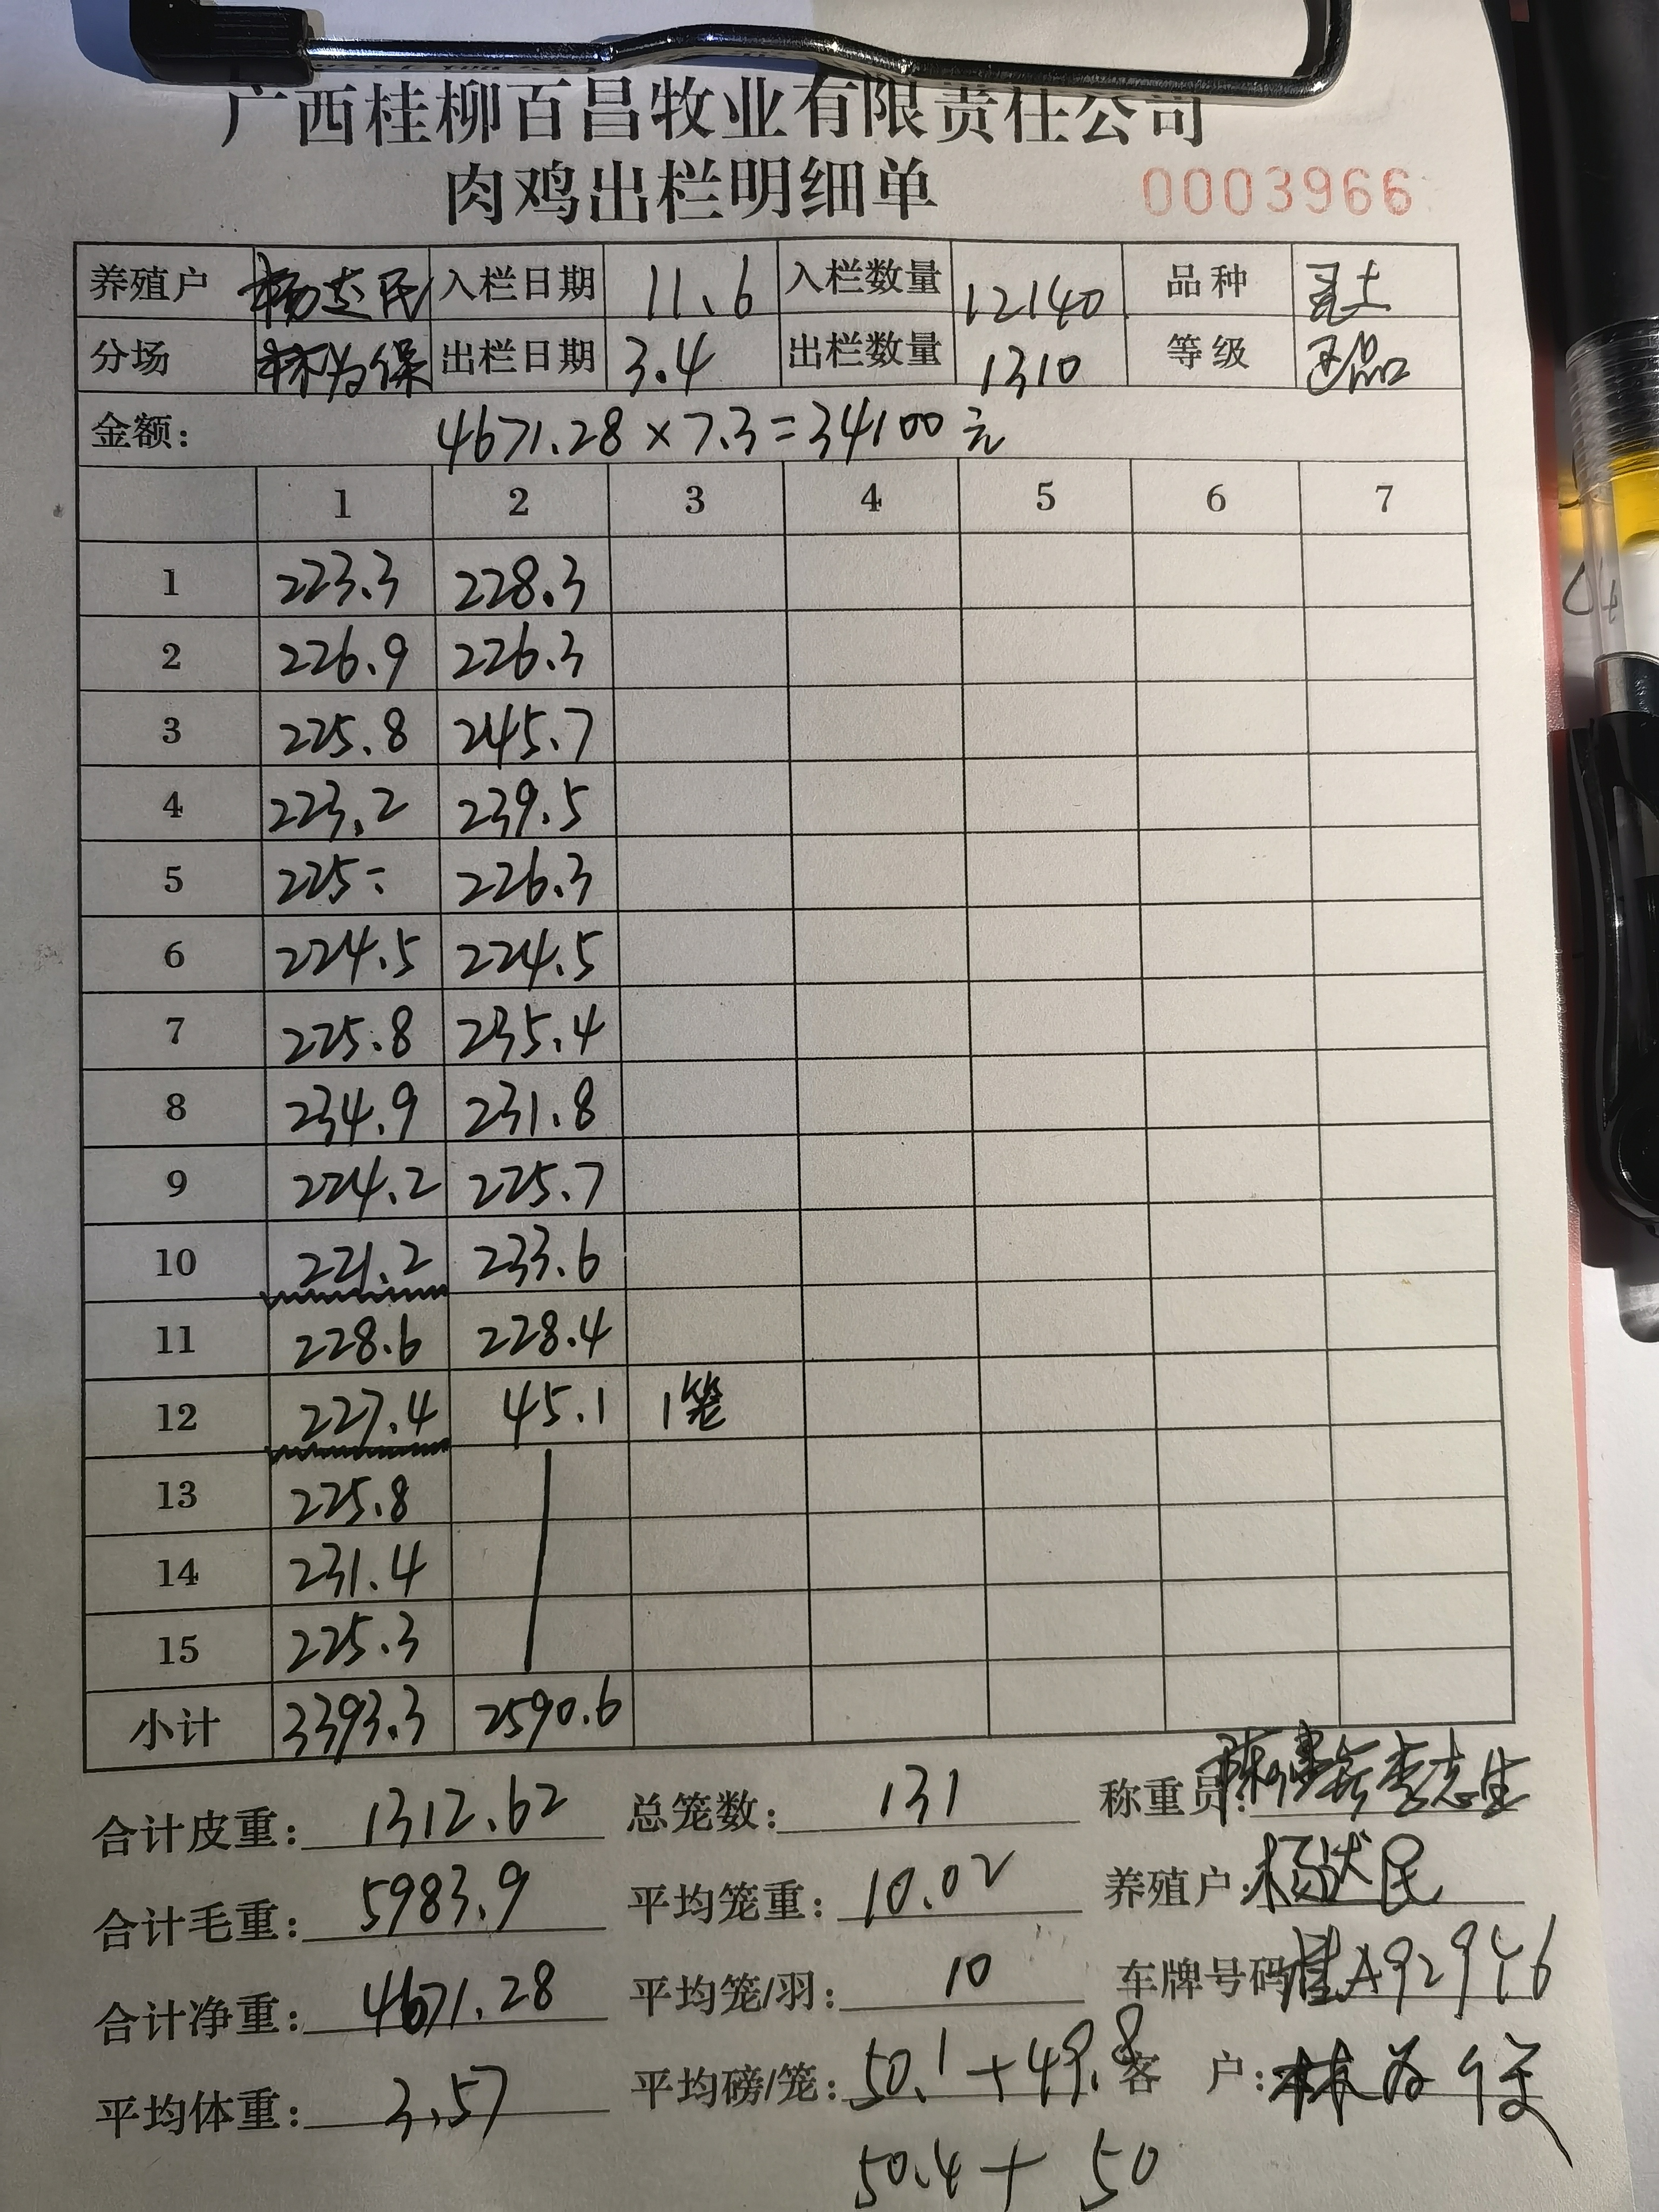 广西桂柳百昌牧业有限责任公司
肉鸡出栏明细单 0003966
养殖户 入栏日期 11.6 入栏数量 12140 品种 土
分场 林为保 出栏日期 3.4 出栏数量 1310 等级 品
金额: 4671.28×7.3=34100元
1 2 3 4 5 6 7
1 223.3 228.3
2 226.9 226.3
3 225.8 245.7
4 223.2 239.5
5 225= 226.3
6 224.5 224.5
7 225.8 235.4
8 234.9 231.8
9 224.2 225.7
10 221.2 233.6
11 228.6 228.4
12 227.4 45.1 1笼
13 225.8
14 231.4
15 225.3
小计 3393.3 2590.6
合计皮重: 1312.62 总笼数: 131 称重员: 李志生
合计毛重: 5983.9 平均笼重: 10.02 养殖户: 杨 民
合计净重: 4671.28 平均笼/羽: 10 车牌号码 桂A92946
平均体重: 3.57 平均磅/笼: 50.1+49.8 客户: 林为
50.4+50